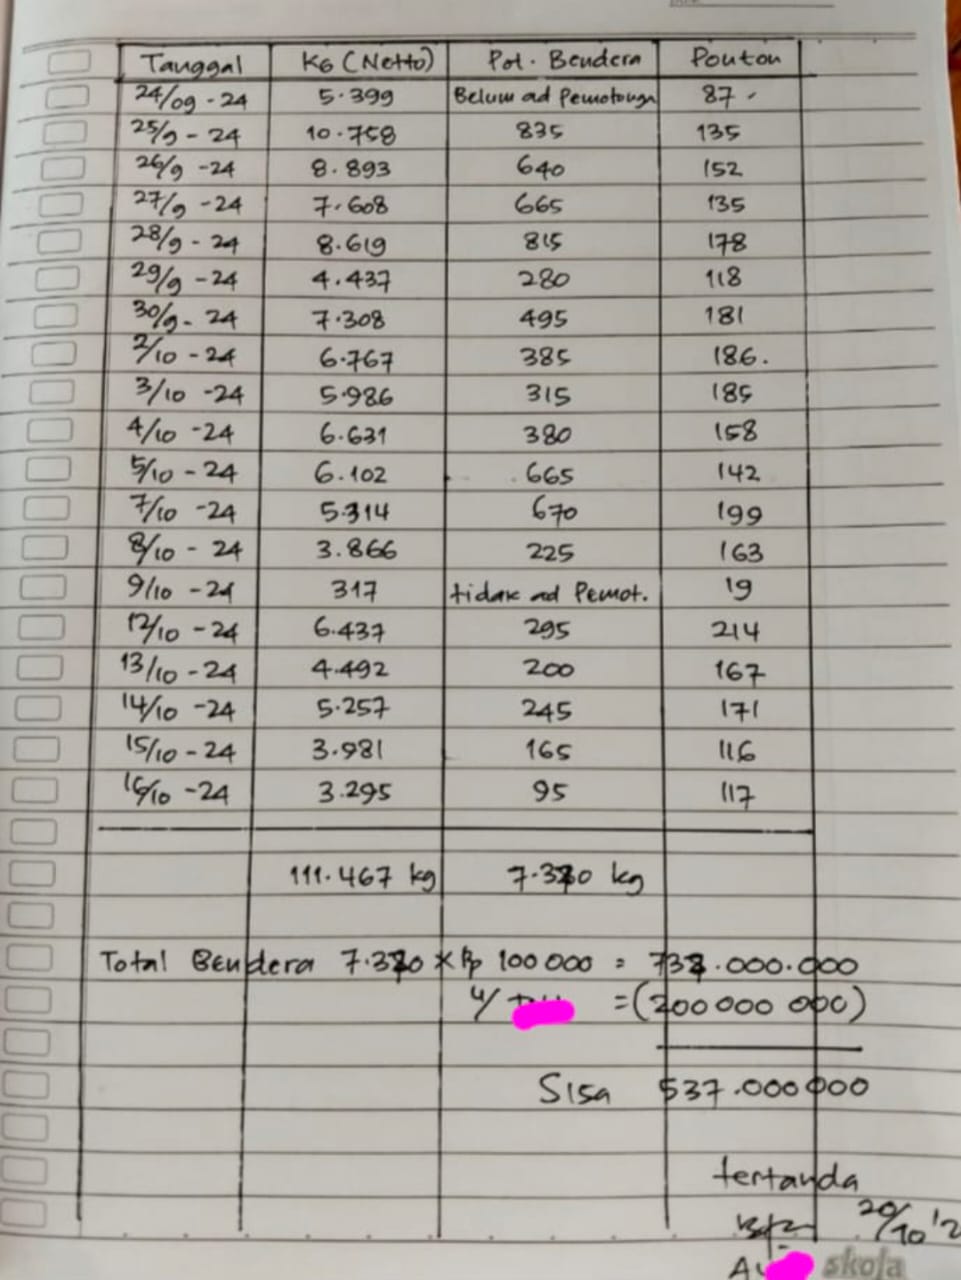 Tanggal KG (Netto) Pot. Bendera Ponton
24/09 - 24 5.399 Belum ad Pemotongn 87
25/9 - 24 10.758 835 135
26/9 - 24 8.893 640 152
27/9 - 24 7.608 665 135
28/9 - 24 8.619 815 178
29/9 - 24 4.437 280 118
30/9 - 24 7.308 495 181
2/10 - 24 6.767 385 186.
3/10 - 24 5.986 315 185
4/10 - 24 6.631 380 158
5/10 - 24 6.102 665 142
7/10 - 24 5.314 670 199
8/10 - 24 3.866 225 163
9/10 - 24 317 tidak ad Pemot. 19
12/10 - 24 6.437 295 214
13/10 - 24 4.492 200 167
14/10 - 24 5.257 245 171
15/10 - 24 3.981 165 116
16/10 - 24 3.295 95 117
111.467 kg kg
Total Bendera × Rp 100 000 = .000.000
u/ = (200 000 000)
Sisa 537.000 000
tertanda
20/10 '2
skola